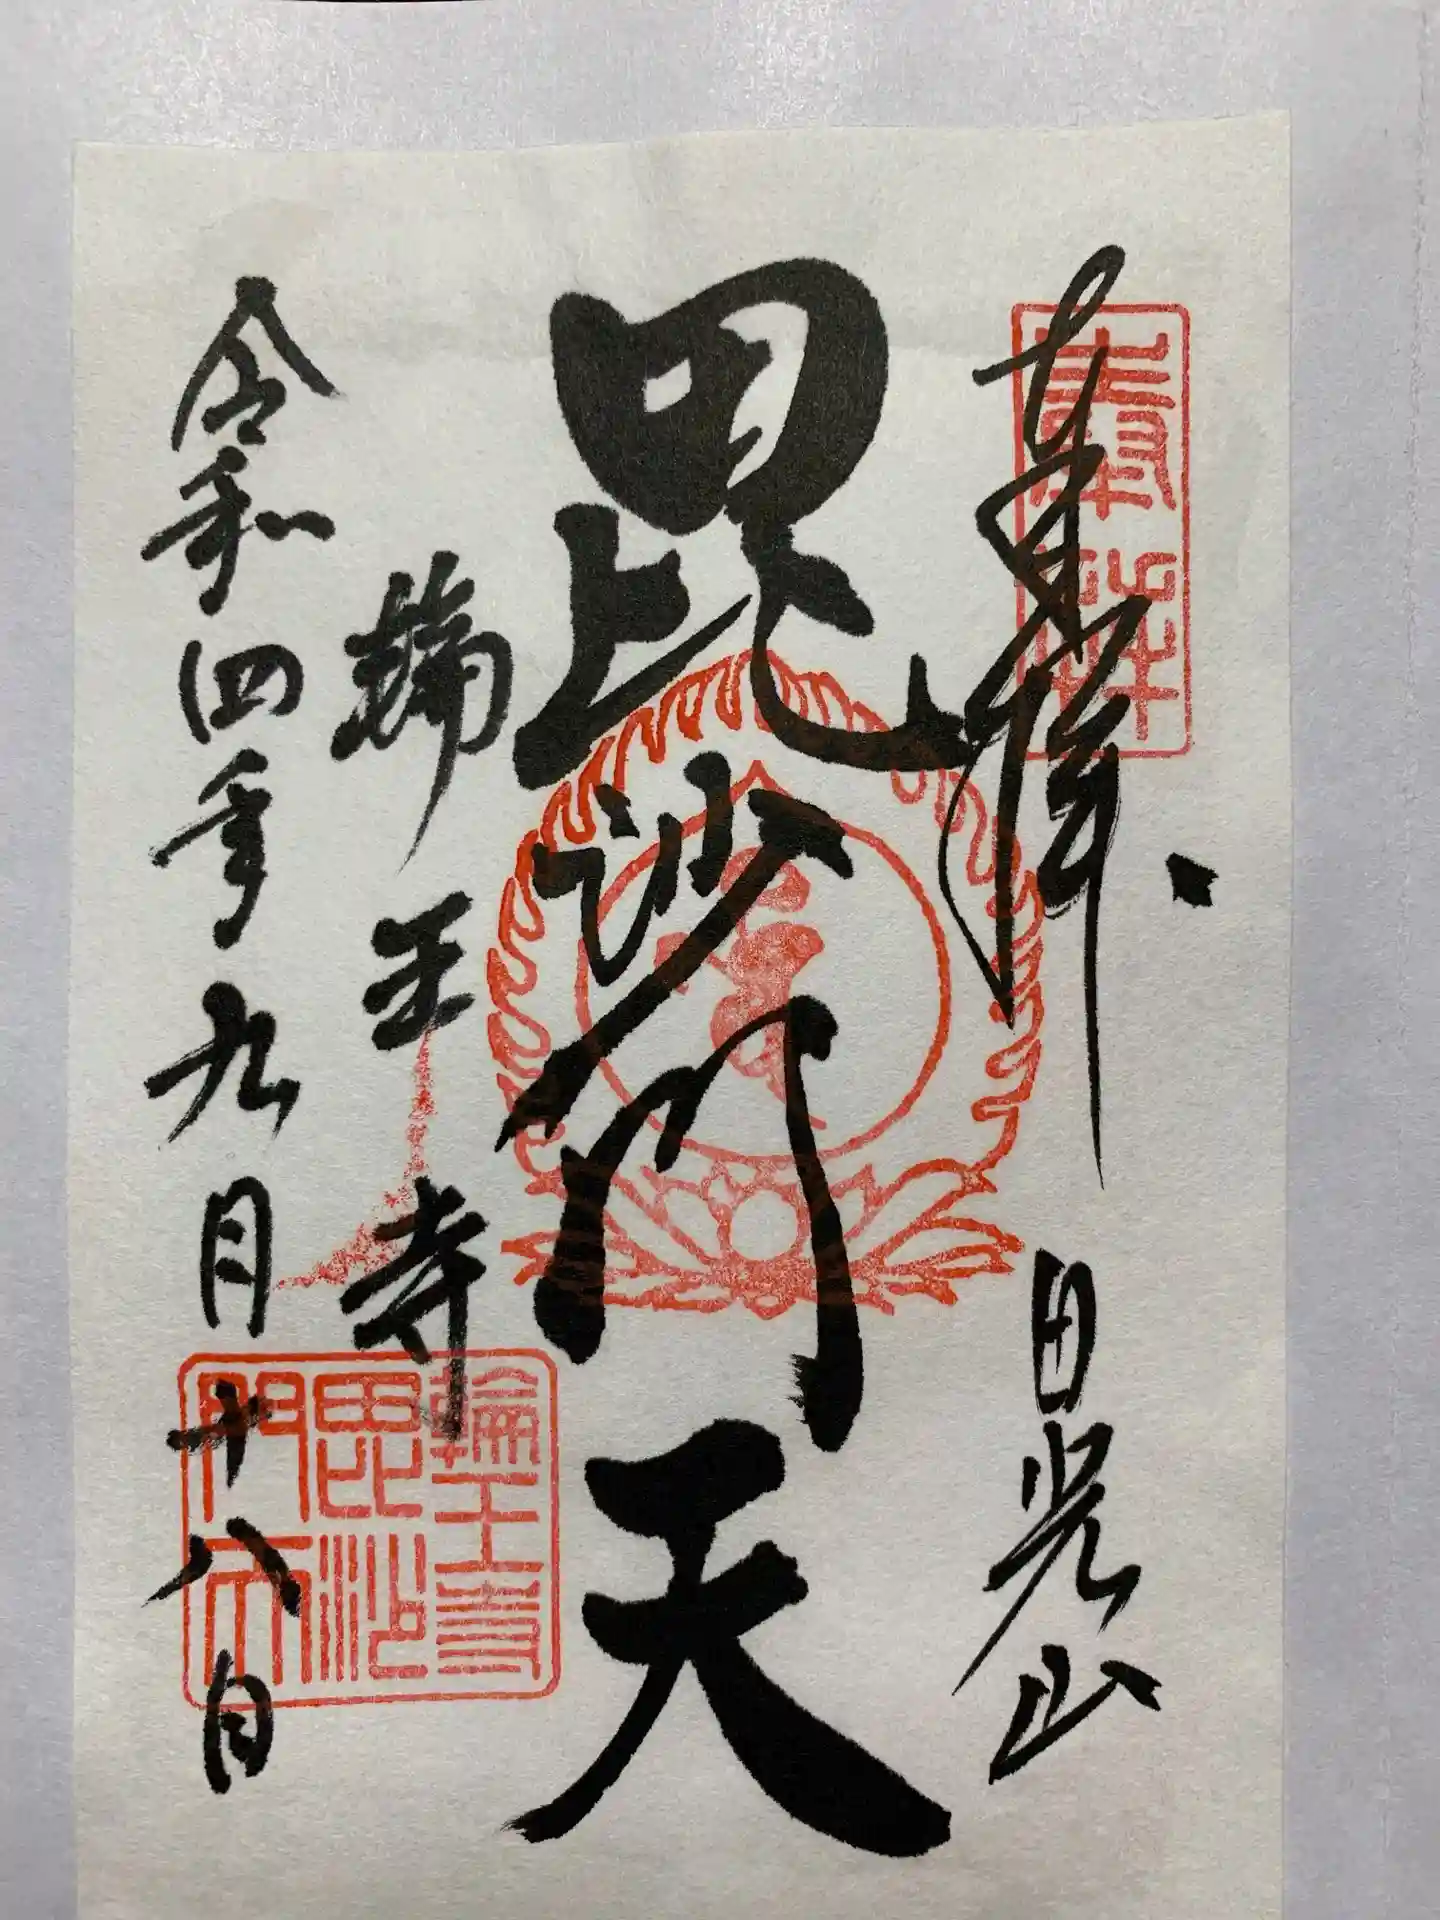 奉拝
日光山
毘沙門天
輪王寺
令和四年九月十八日
奉拝
輪王寺
毘沙
門天